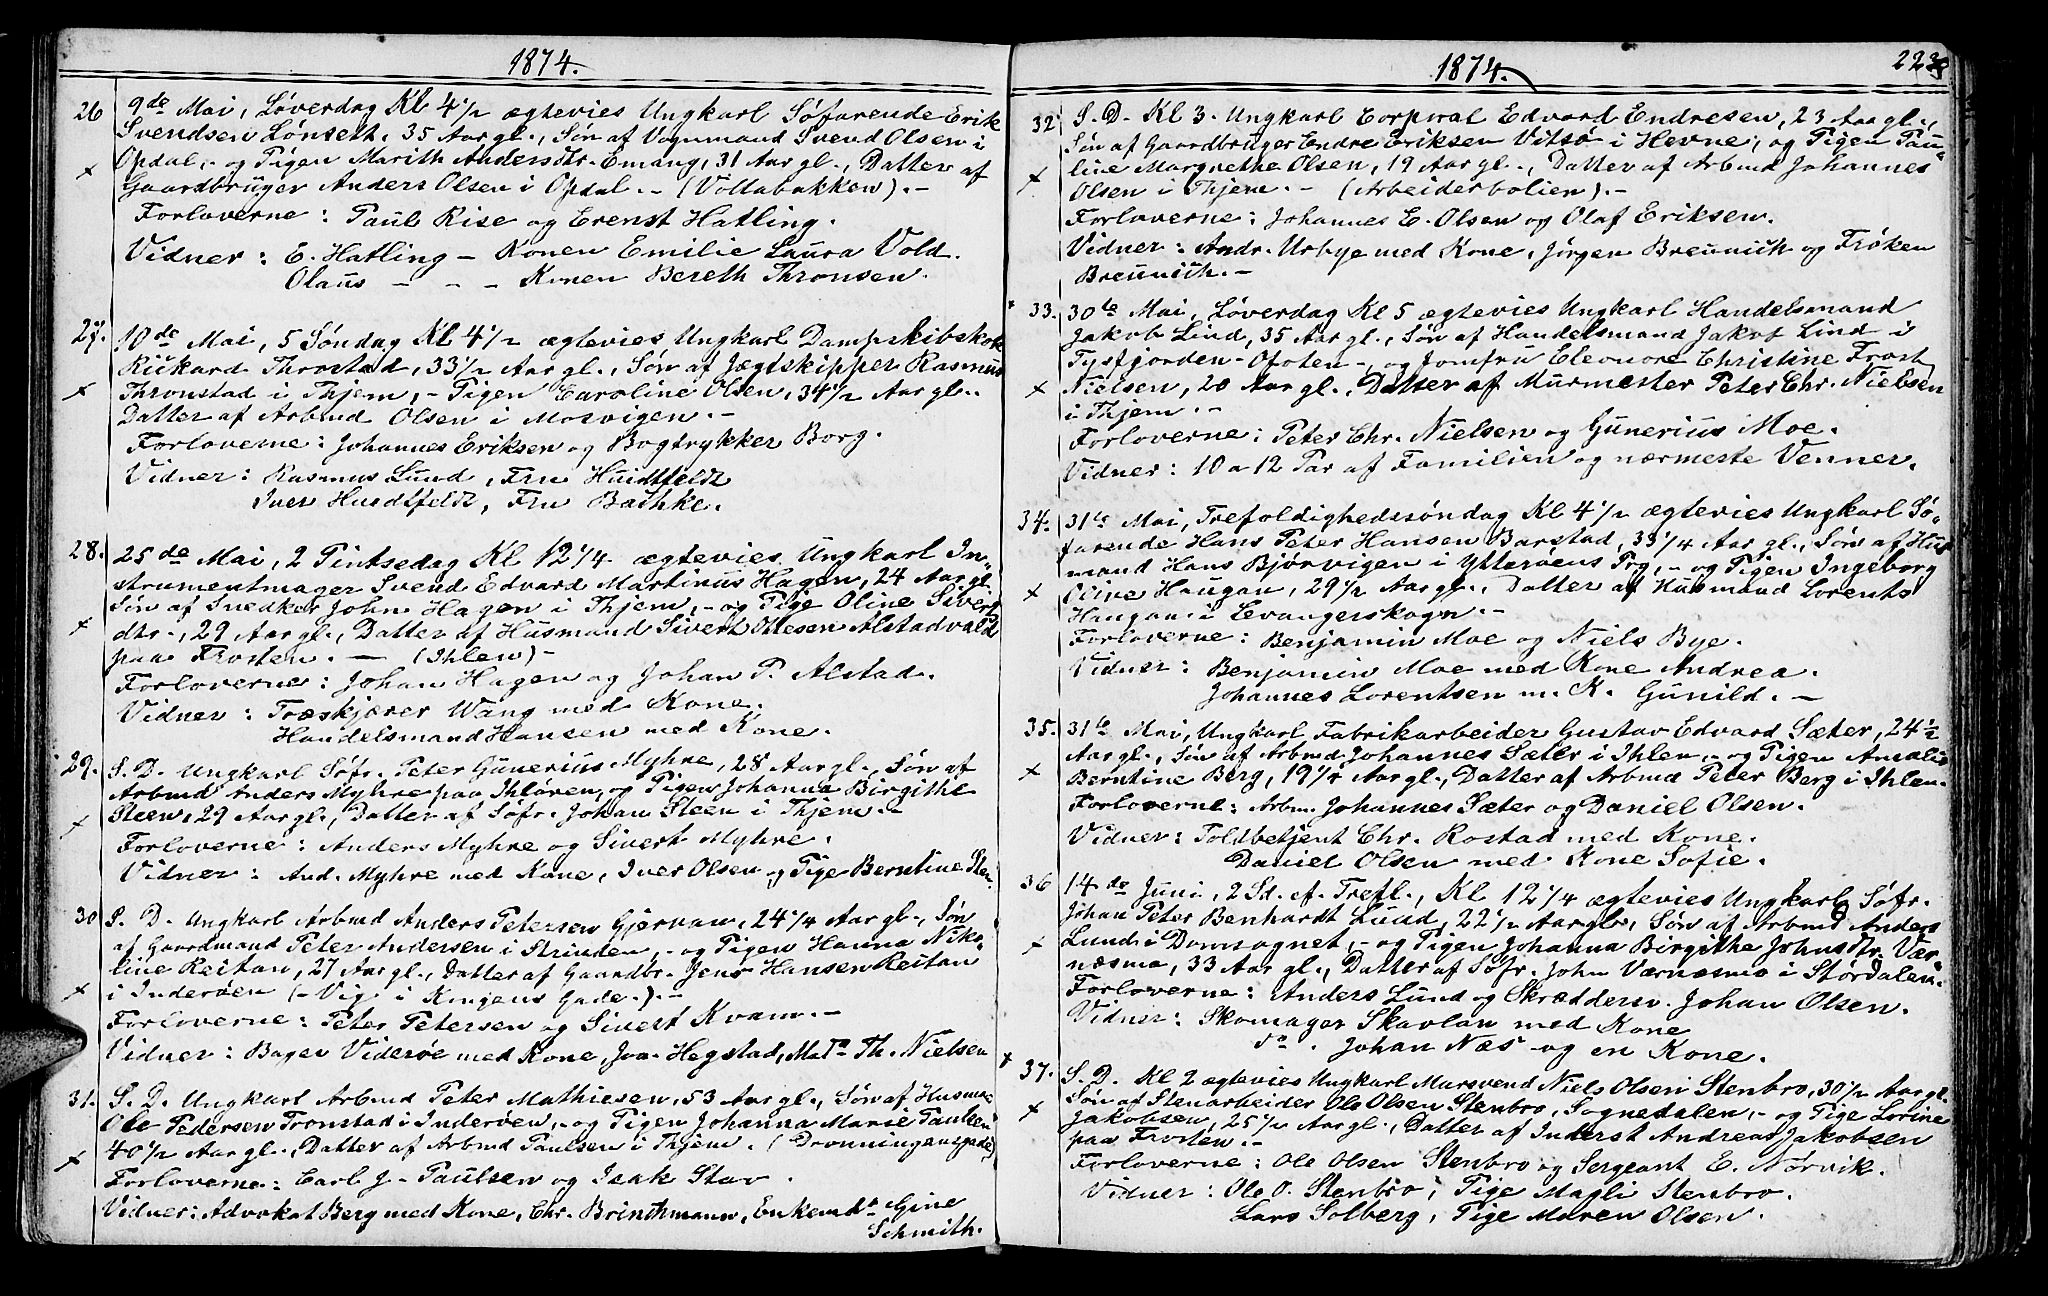 1874.
26 9de Mai, Løverdag Kl 4 1/2 ægtevies Ungkarl Søfarende Erik
Svendsen Lønseth, 35 Aar gl., Søn af Vognmand Svend Olsen i
Opdal, - og Pigen Marith Andersdtr. Emang, 31 Aar gl., Datter af
Gaardbruger Anders Olsen i Opdal. - (Vollabakken). -
Forloverne: Paul Rise og Erenst Hatling.
Vidner: E. Hatling - Konen Emilie Laura Vold.
Olaus - - - Konen Bereth Thronsen.
27. 10de Mai, 5 Søndag Kl 4 1/2 ægtevies Ungkarl Dampskibskok
Rickard Throstad, 33 1/2 Aar gl., Søn af Jægtskipper Rasmus
Thronstad i Thjem, - Pigen Caroline Olsen, 34 1/2 Aar gl.,
Datter af Arbmd Olsen i Mosvigen. -
Forloverne: Johannes Eriksen og Bogtrykker Borg.
Vidner: Rasmus Lund, Fru Huidtfeldt
Iver Huidtfeldt, Fru Bathke.
28. 25de Mai, 2 Pintsedag Kl 12 1/4 ægtevies Ungkarl In=
strumentmager Svend Edvard Martinus Hagen, 24 Aar gl.
Søn af Snedker John Hagen i Thjem, - og Pige Oline Sivert
dtr., 29 Aar gl., Datter af Husmand Sivert Ottesen Alstadvald
paa Frosten. - (Ihlen) -
Forloverne: Johan Hagen og Johan P. Alstad.
Vidner: Træskjærer Wang med Kone.
Handelsmand Hansen med Kone.
29. S. D. Ungkarl Søfr. Peter Gunerius Myhre, 28 Aar gl., Søn af
Arbmd Anders Myhre paa Ihløren, og Pigen Johanna Birgithe
Steen, 29 Aar gl., Datter af Søfr. Johan Steen i Thjem. -
Forloverne: Anders Myhre og Sivert Myhre.
Vidner: And. Myhre med Kone, Iver Olsen og Pige Berntine Sten.
30 S. D. Ungkarl Arbmd Anders Petersen Gjervan, 24 1/4 Aar gl., Søn
af Gaardmand Peter Andersen i Strinden, - og Pigen Hanna Niko=
line Reitan, 27 Aar gl., Datter af Gaardbr. Jens Hansen Reitan
i Inderøen (- Vig i Kongens Gade.). -
Forloverne: Peter Petersen og Sivert Kvam. -
Vidner: Bager Viderøe med Kone, Joa. Hegstad, Mad. Th. Nielsen
31. S. D. Ungkarl Arbmd Peter Mathiesen, 53 Aar gl., Søn af Husmd
Ole Pedersen Tronstad i Inderøen, - og Pigen Johanna Marie Paulsen
40 1/2 Aar gl., Datter af Arbmd Paulsen i Thjem. (Dronningensgade)
Forloverne: Carl J. Paulsen og Isak Stav.
Vidner: Advokat Berg med Kone, Chr. Brinchmann, Enkemd. Gine
Schmith.
1874. 223
32 S. D. Kl 3. Ungkarl Corporal Edvard Endresen, 23 Aar gl.,
Søn af Gaardbruger Endre Eriksen Vitsø i Hevne, og Pigen Pau=
line Margrethe Olsen, 19 Aar gl., Datter af Arbmd Johannes
Olsen i Thjem. - (Arbeiderbolien). -
Forloverne: Johannes E. Olsen og Olaf Eriksen.
Vidner: Andr. Urbye med Kone, Jørgen Breunich og Frøken
Breunich. -
33. 30te Mai, Løverdag Kl 5 ægtevies Ungkarl Handelsmand
Jakob Lind, 35 Aar gl., Søn af Handelsmand Jakob Lind i
Tysfjorden - Ofoten -, og Jomfru Eleonore Christine Frost
Nielsen, 20 Aar gl., Datter af Murmester Peter Chr. Nielsen
i Thjem. -
Forloverne: Peter Chr. Nielsen og Gunerius Moe.
Vidner: 10 a 12 Par af Familien og nærmeste Venner.
34. 31te Mai, Trefoldighedssøndag Kl 4 1/2 ægtevies Ungkarl Sø=
farende Hans Peter Hansen Barstad, 33 1/4 Aar gl., Søn af Hus
mand Hans Bjørvigen i Ytterøens Prg, - og Pigen Ingeborg
Oline Haugan, 29 1/2 Aar gl., Datter af Husmand Lorents
Haugan i Levangerskogn. -
Forloverne: Benjamin Moe og Niels Bye.
Vidner: Benjamin Moe med Kone Andrea.
Johannes Lorentsen m. K. Gunild. -
35. 31te Mai, Ungkarl Fabrikarbeider Gustav Edvard Sæter, 24 1/2
Aar gl., Søn af Arbmd Johannes Sæter i Ihlen, - og Pigen Amalie
Berntine Berg, 19 1/4 Aar gl., Datter af Arbmd Peter Berg i Ihlen.
Forloverne: Arbm. Johannes Sæter og Daniel Olsen.
Vidner: Toldbetjent Chr. Rostad med Kone.
Daniel Olsen med Kone Sofie.
36 14de Juni, 2 Sd. ef. Trefl., Kl 12 1/4 ægtevies Ungkarl Søfr.
Johan Peter Benhardt Lund, 22 1/2 Aar gl., Søn af Arbmd Anders
Lund i Domsognet, - og Pigen Johanna Birgithe Johnsdtr. Vær=
næsmo, 33 Aar gl., Datter af Søfr. John Værnæsmo i Størdalen.
Forloverne: Anders Lund og Skræddersv. Johan Olsen.
Vidner: Skomager Skavlan med Kone
do. Johan Næs og en Kone.
37. S. D. Kl 2 ægtevies Ungkarl Mursvend Niels Olsen Stenbro, 30 1/2 Aar gl.
Søn af Stenarbeider Ole Olsen Stenbro, Sognedalen, - og Pige Lorine
Jakobsen, 25 1/2 Aar gl., Datter af Inderst Andreas Jakobsen
paa Frosten. -
Forloverne: Ole Olsen Stenbro og Sergeant E. Nørvik.
Vidner: Ole O. Stenbro, Pige Magli Stenbro.
Lars Solberg, Pige Maren Olsen.